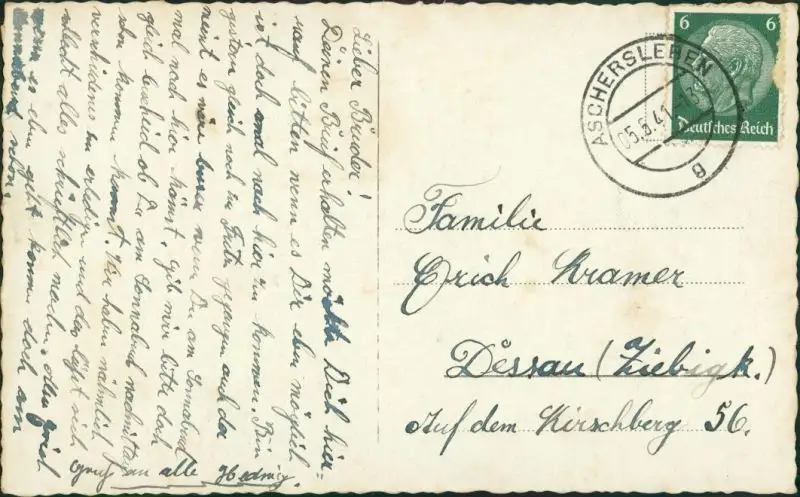 Lieber Bruder!
Deinen Brief erhalten möchte Dich hier-
rauf bitten wenn es Dir eben möglich
ist doch mal nach hier zu kommen. Bin
gestern gleich nach gegangen auch der
meint es wenn Du am Sonnabend
mal nach hier kämst. gib mir bitte doch
gleich bescheid ob Du am Sonnabend nachmittag
schon kommen kannst. Wir haben nämlich
verschiedenes zu erledigen und das läßt sich
schlecht alles schriftlich machen. Also Fritz
wenn es eben geht komme doch am
Sonnabend schon.
Gruß an alle Hedwig.
6 6
Deutsches Reich
ASCHERSLEBEN
05.6.41
g
Familie
Erich Kramer
Dessau (Ziebigk.)
Auf dem Kirschberg 56.